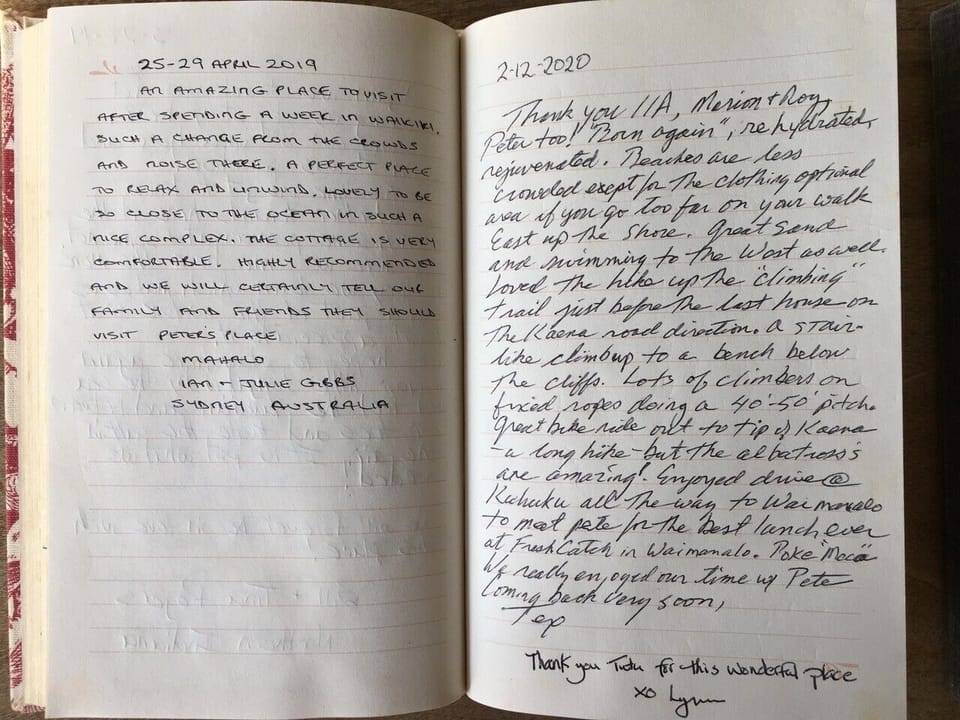 25-29 APRIL 2019
AN AMAZING PLACE TO VISIT
AFTER SPENDING A WEEK IN WAIKIKI.
SUCH A CHANGE FROM THE CROWDS
AND NOISE THERE. A PERFECT PLACE
TO RELAX AND UNWIND. LOVELY TO BE
SO CLOSE TO THE OCEAN IN SUCH A
NICE COMPLEX. THE COTTAGE IS VERY
COMFORTABLE. HIGHLY RECOMMENDED
AND WE WILL CERTAINLY TELL OUR
FAMILY AND FRIENDS THEY SHOULD
VISIT PETER'S PLACE
MAHALO
IAN + JULIE GIBBS
SYDNEY AUSTRALIA
2-12-2020
Thank you 11A, Merion + Roy,
Peter too! "Born again", rehydrated,
rejuvenated. Beaches are less
crowded except for the clothing optional
area if you go too far on your walk
East up the shore. Great sand
and swimming to the West as well.
Loved the hike up the "climbing"
trail just before the last house on
the Kaena road direction. A stair-
like climb up to a bench below
the cliffs. Lots of climbers on
fixed ropes doing a 40'-50' pitch.
Great bike ride out to tip of Kaena
- a long hike - but the albatross's
are amazing! Enjoyed drive @
Kuhuku all the way to Waimanalo
to meet pete for the best lunch ever
at Fresh Catch in Waimanalo. Poke
We really enjoyed our time w/ Pete
Coming back very soon,
Tex
Thank you Tutu for this wonderful place
xo Lynn